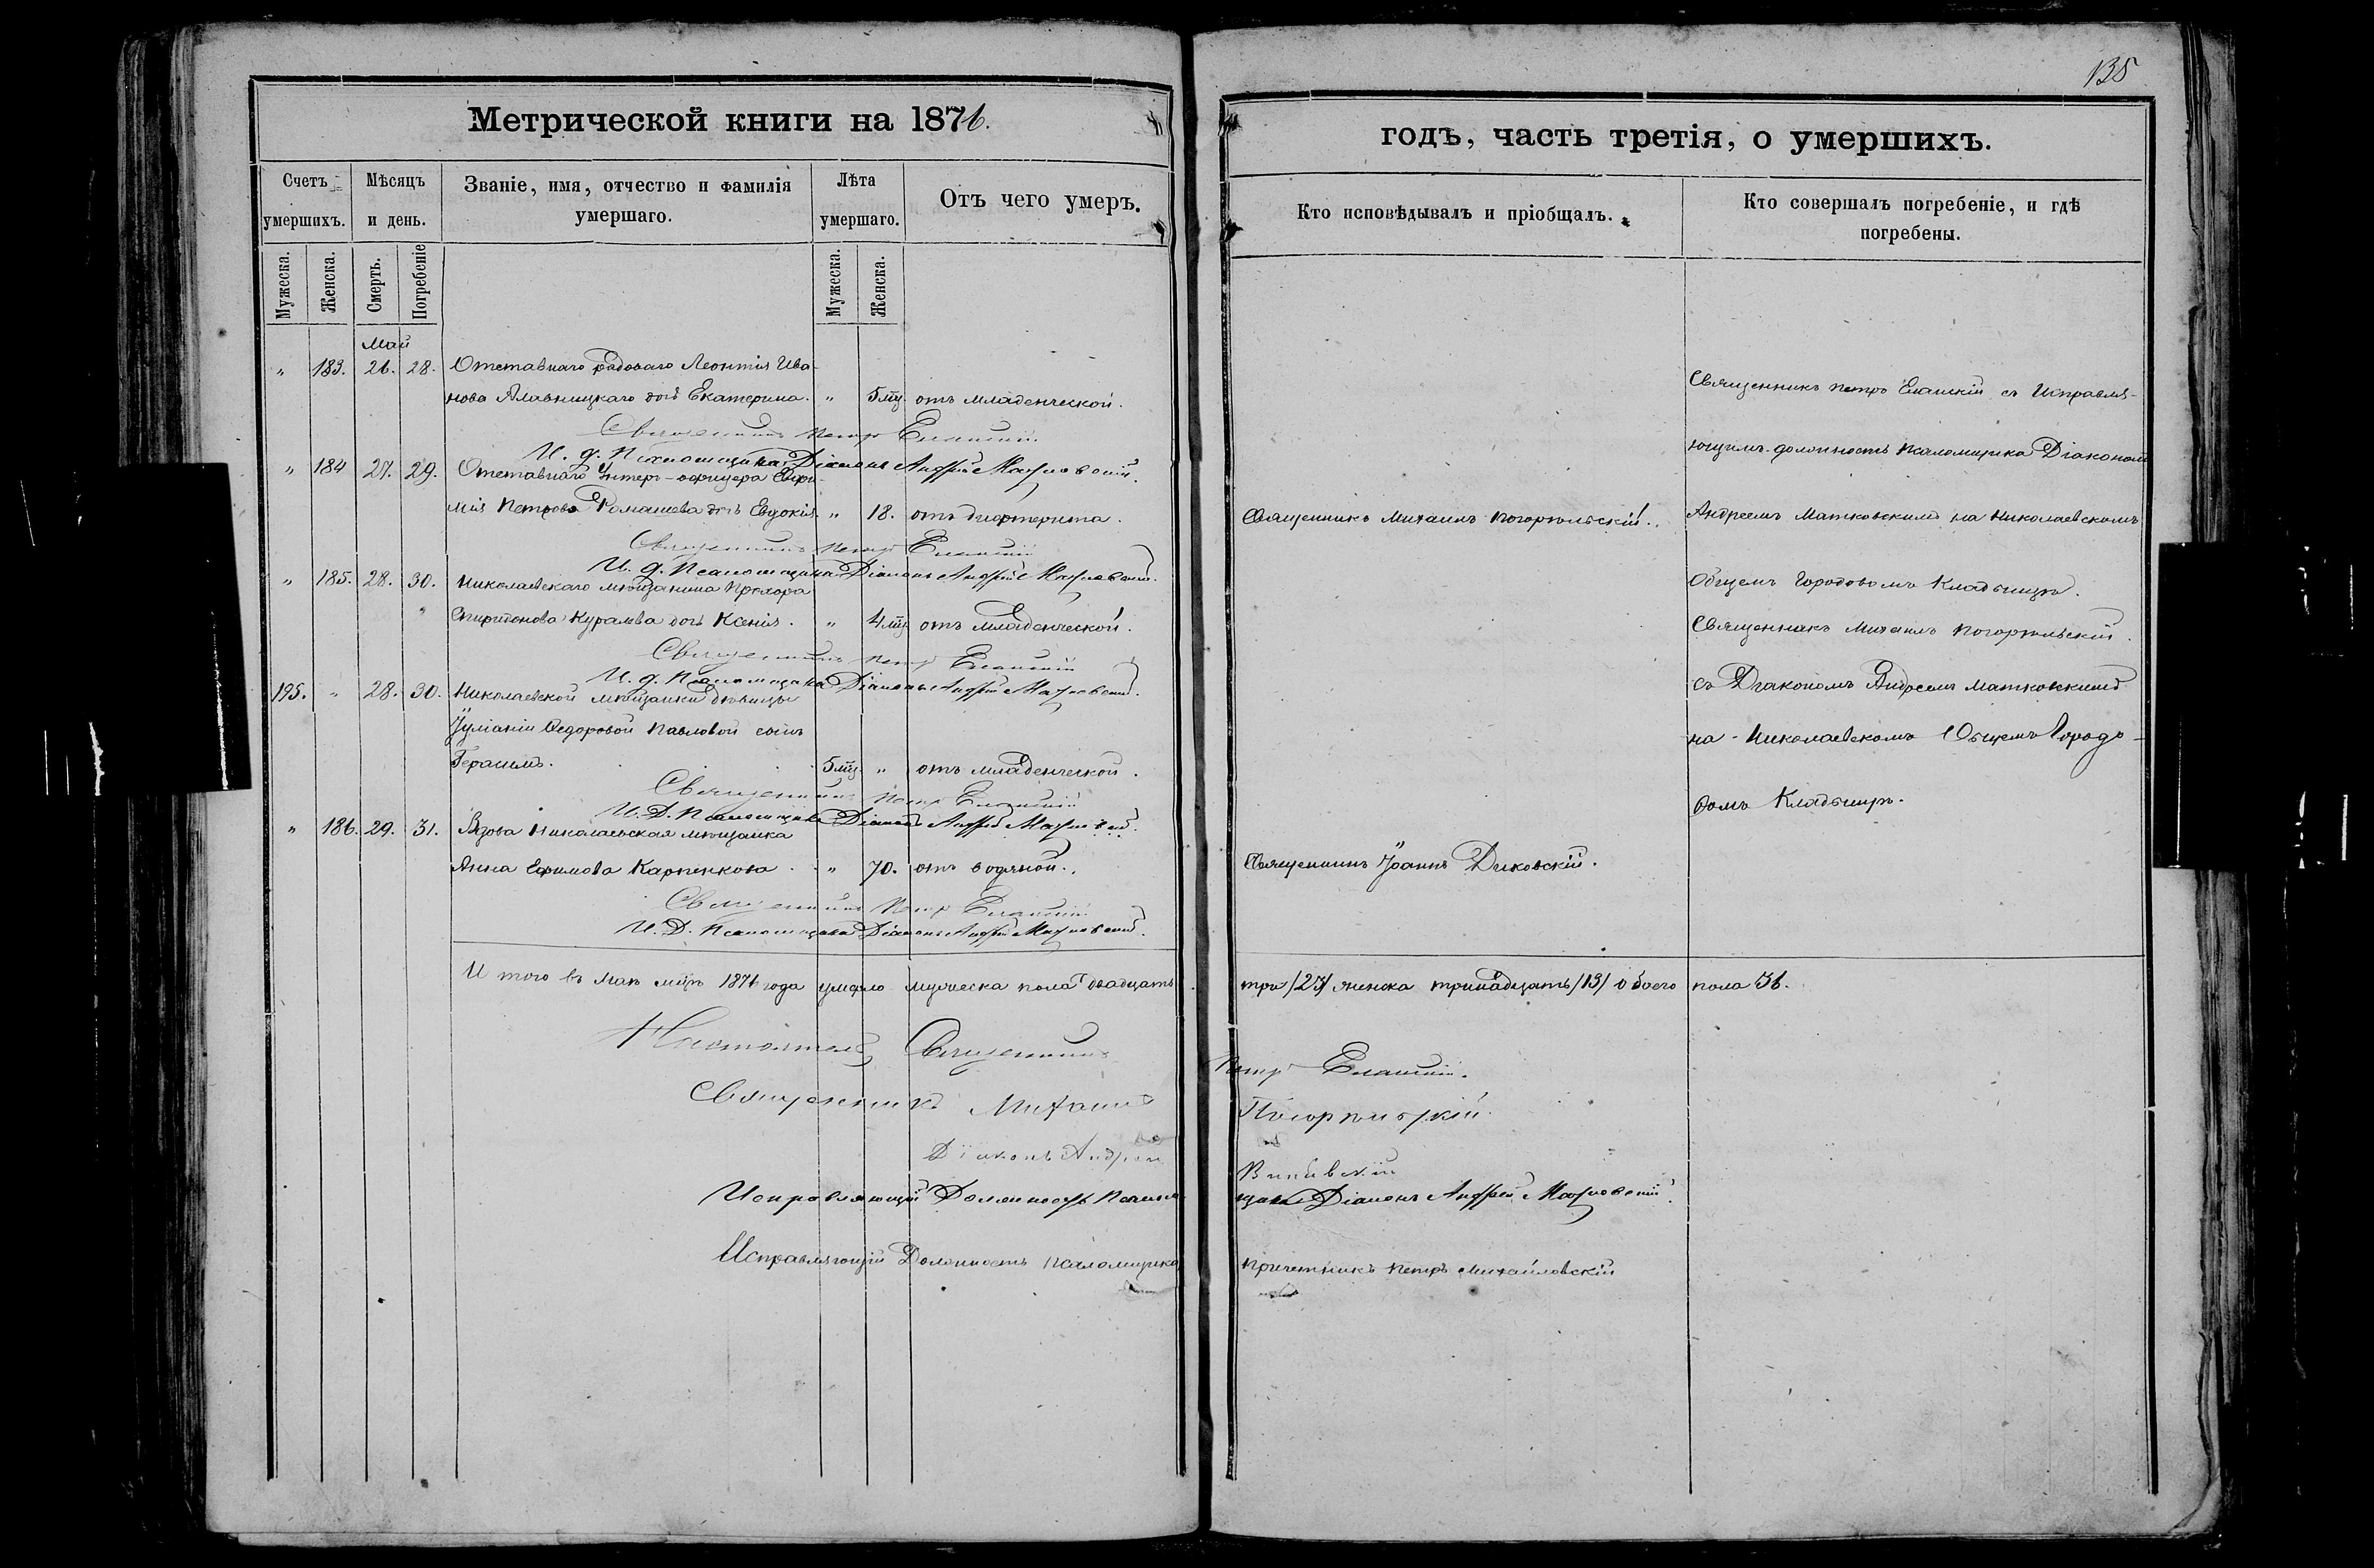 135
Метрической книги на 1876.
годъ, часть третія, о умершихъ.
Счетъ умершихъ.
Мѣсяцъ и день.
Званіе, имя, отчество и фамилія умершаго.
Лѣта умершаго.
Отъ чего умеръ.
Кто исповѣдывалъ и пріобщалъ.
Кто совершалъ погребеніе, и гдѣ погребены.
Мужеска.
Женска.
Смерть.
Погребеніе
Мужеска.
Женска.
Май
" 183. 26. 28. Отставнаго рядоваго Леонтія Ива-
нова дочь Екатерина. " 5 мц. отъ младенческой.
Священникъ Петръ
И. д. Псаломщика Діаконъ Андрей Матковскій.
" 184 27. 29. Отставнаго Унтеръ-офицера Евфи-
мія Петрова Ромашева дочь Евдокія. " 18. отъ дифтерита.
Священникъ Петръ
И. д. Псаломщика Діаконъ Андрей Матковскій.
" 185. 28. 30. Николаевскаго мѣщанина Прохора
Спиридонова дочь Ксенія. " 4 мц. отъ младенческой.
Священникъ Петръ
И. д. Псаломщика Діаконъ Андрей Матковскій.
195. " 28. 30. Николаевской мѣщанки дѣвицы
Іуліаніи Ѳедоровой Павловой сынъ
Герасимъ. 5 мц. " отъ младенческой.
Священникъ Петръ
И. Д. Псаломщика Діаконъ Андрей Матковскій.
" 186. 29. 31. Вдова Николаевская мѣщанка
Анна Ефимова Карпенкова " 70. отъ водяной.
Священникъ Петръ
И. Д. Псаломщика Діаконъ Андрей Матковскій.
Священникъ Михаилъ Погорѣльскій.
Священникъ Іоаннъ Диковскій.
Священникъ Петръ съ Исправля-
ющимъ должность Псаломщика Діакономъ
Андреемъ Матковскимъ на Николаевскомъ
Общемъ Городовомъ Кладбищѣ.
Священникъ Михаилъ Погорѣльскій
съ Діакономъ Андреемъ Матковскимъ
на Николаевскомъ Общемъ Городо-
вомъ Кладбищѣ.
И того въ Маѣ мцѣ 1876 года умерло мужеска пола двадцать три /23/ женска тринадцать /13/ обоего пола 36.
Настоятель Священникъ Петръ
Священникъ Михаилъ Погорѣльскій.
Діаконъ Андрей
Исправляющій Должность Псаломщика Діаконъ Андрей Матковскій.
Исправляющій Должность Псаломщика Причетникъ Петръ Михайловскій